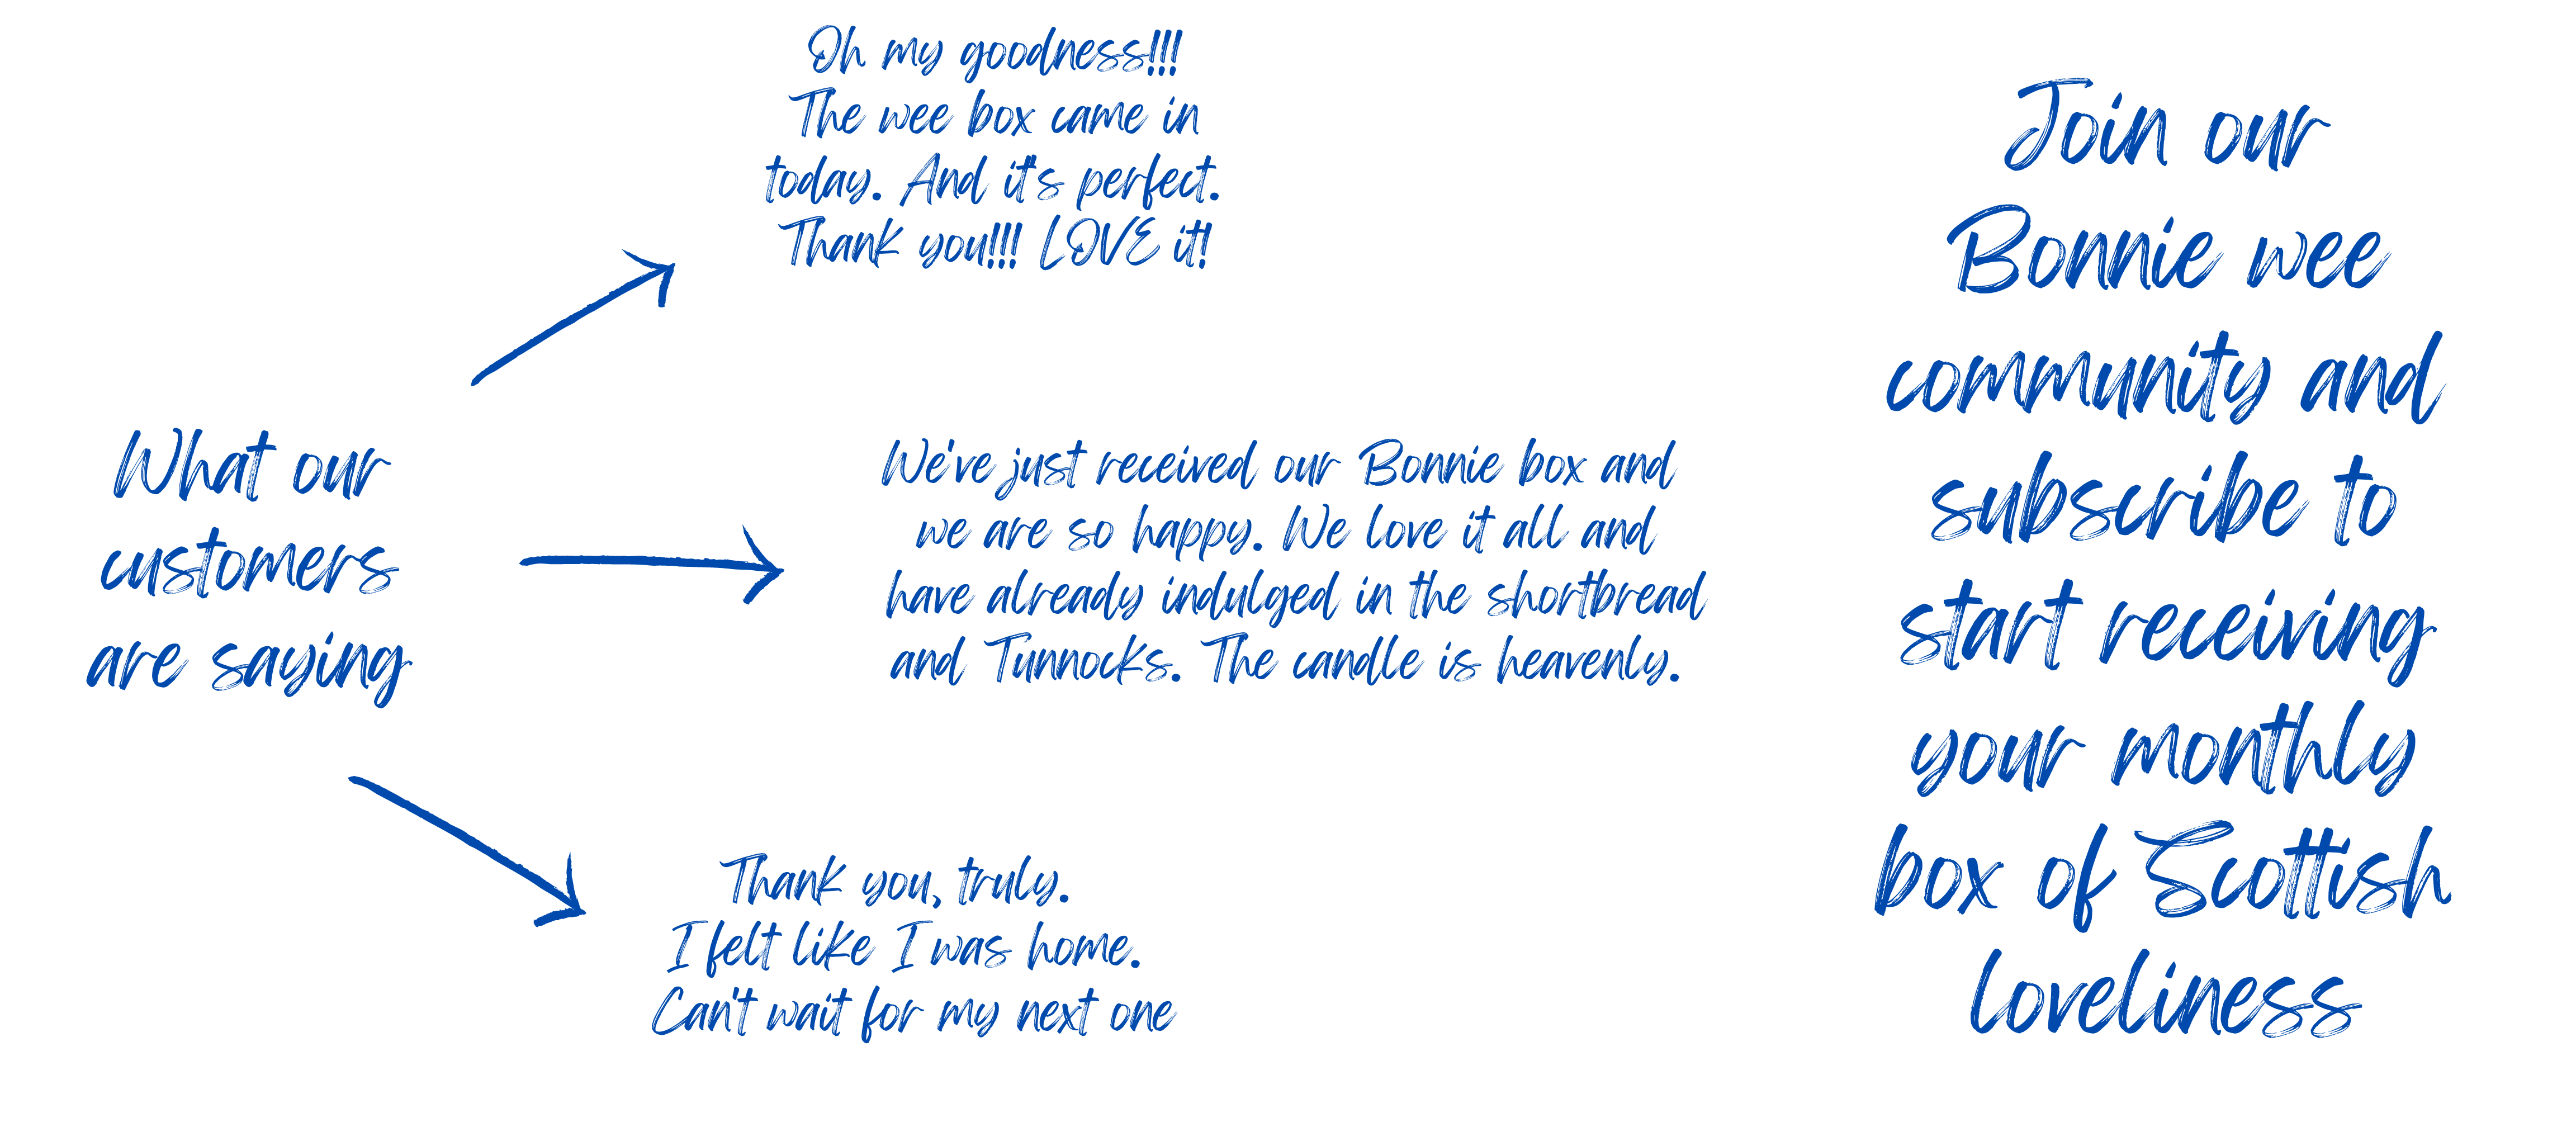 What our
customers
are saying
Oh my goodness!!!
The wee box came in
today. And it's perfect.
Thank you!!! LOVE it!
We've just received our Bonnie box and
we are so happy. We love it all and
have already indulged in the shortbread
and Tunnocks. The candle is heavenly.
Thank you, truly.
I felt like I was home.
Can't wait for my next one
Join our
Bonnie wee
community and
subscribe to
start receiving
your monthly
box of Scottish
loveliness